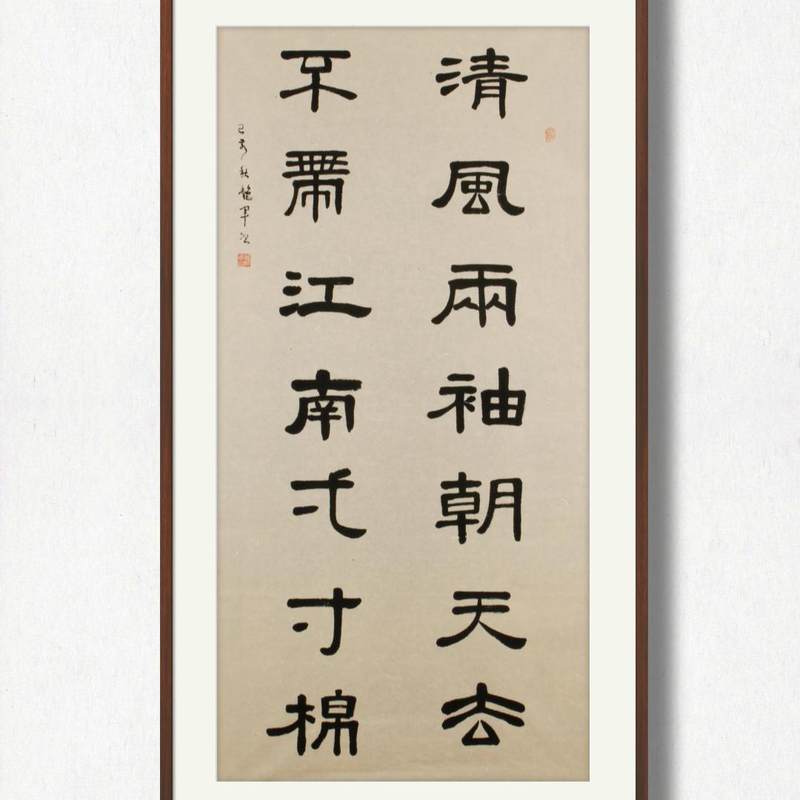 清風兩袖朝天去
不帶江南弌寸棉
己亥秋